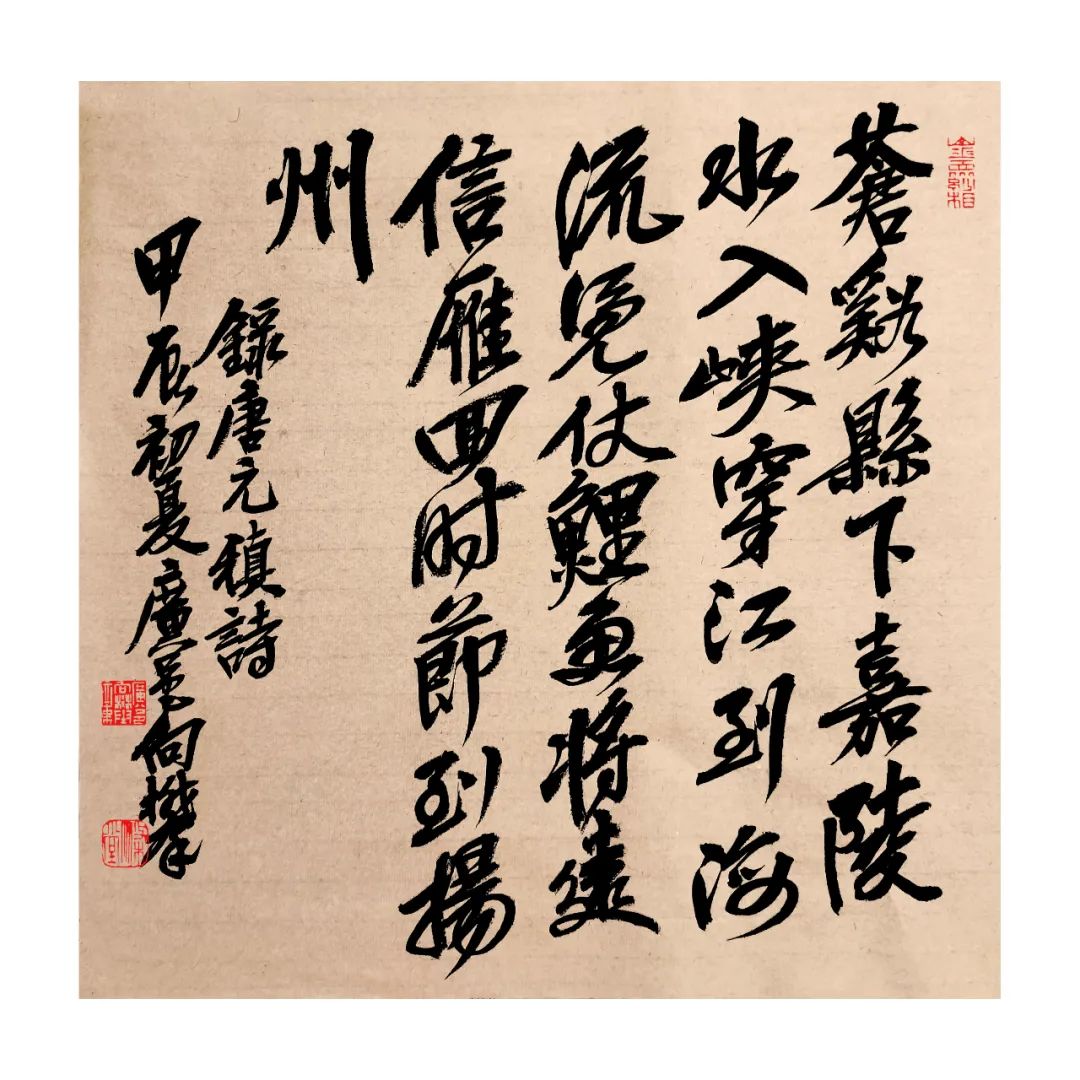 蒼谿縣下嘉陵
水入峽穿江到海
流凴仗鯉魚将遠
信雁回时節到揚
州
錄唐元稹詩
甲辰初夏廣邑向